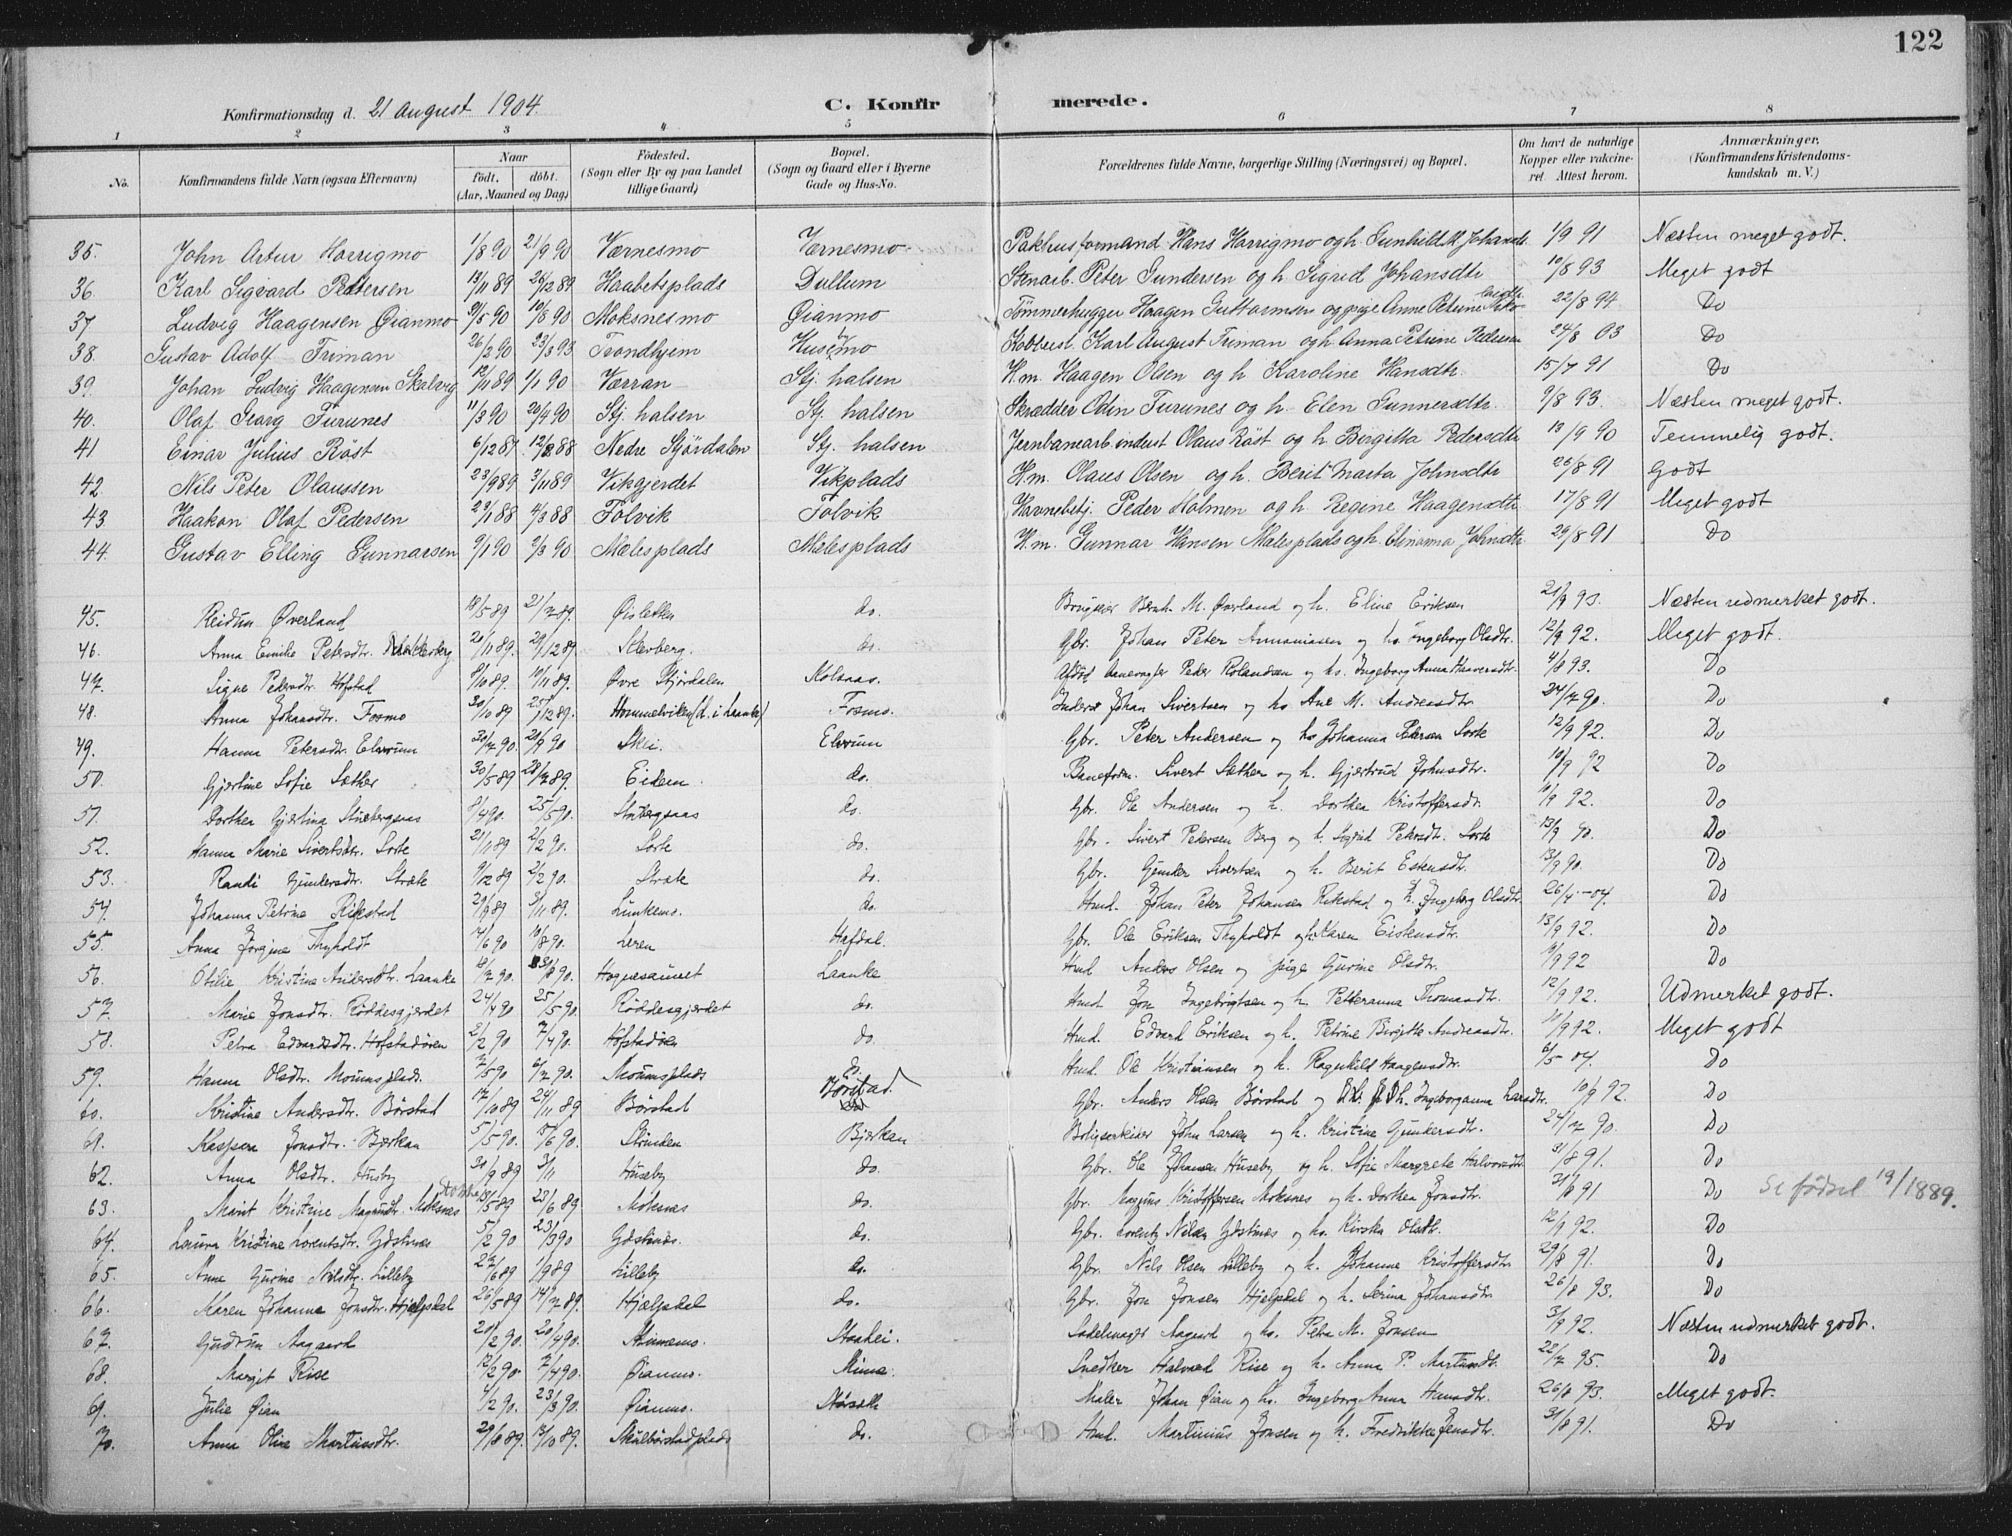 122
Konfirmationsdag d. 21 August 1904. C. Konfirmerede.
1 2 3 4 5 6 7 8
No. Konfirmandens fulde Navn (ogsaa Efternavn) Naar født. døbt. (Aar, Maaned og Dag) Fødested. (Sogn eller By og paa Landet tillige Gaard) Bopæl. (Sogn og Gaard eller i Byerne Gade og Hus-No. Forældrenes fulde Navne, borgerlige Stilling (Næringsvei) og Bopæl. Om havt de naturlige Kopper eller vaccineret. Attest herom. Anmærkninger. (Konfirmandens Kristendomskundskab m. V.)
35. John Artur Horrigmo 1/8 90 21/9 90 Værnesmo Værnesmo Pakhusformand Hans Horrigmo og h. Gunhild M. Johansdt. 1/9 91 Næsten meget godt.
36. Karl Sigvard Pettersen 13/11 89 26/12 89 Haabetsplads Dullum Stenarb. Peter Gundersen og h. Sigrid Johansdtr 10/8 93 Meget godt
37 Ludvig Haagensen Øianmo /5 90 /6 90 Moksnesmo Øianmo Tømmerhugger Haagen Guttormsen og pige Anne Petrine 22/8 94 Do
38. Gustav Adolf Friman 26/2 90 23/3 93 Trondhjem Husbymo Karl August Friman og h. Anna Petrine Pedersen 24/8 03 Do
39. Johan Ludvig Haagensen Skalvig 12/11 89 1/1 90 Værran Stj. halsen H.m. Haagen Olsen og h. Karoline Hansdtr. 15/7 91 Do
40. Olaf Georg Furunes 11/3 90 20/4 90 Stj. halsen Stj. halsen Skrædder Odin Furunes og h. Elen Gunnersdtr. 9/8 93. Næsten meget godt.
41 Einar Julius Røst 6/12 87 12/2 88 Nedre Stjørdalen Stj. halsen Jernbanearb. indust Olaus Røst og h. Birgitta Pedersdtr 13/9 90 Temmelig godt.
42. Nils Peter Olaussen 23/9 89 3/11 89 Vikgjerdet Vikplads H.m. Olaus Olsen og h. Berit Marta Johnsdtr 26/8 91 Godt
43 Haakon Olaf Pedersen 29/1 88 4/3 88 Folvik Folvik Havnebetj. Peder Holmen og h. Regine Haagensdtr. 17/8 91 Meget godt
44. Gustav Elling Gunnarsen 9/1 90 9/3 90 Mælesplads Mælesplads H.m. Gunnar Hansen Mælesplads og h. Elinanna Johnsdtr. 29/8 91 Do
45. Reidun Øverland 18/5 89 21/7 89. Øisletten do. Brugseier Bernh. M. Øverland og h. Eline Eriksen 21/9 93. Næsten udmerket godt.
46. Anna Emilie Petersdtr. Skjerberg 20/11 89. 29/12 89 Skerberg. do. Gbr. Johan Peter Annaniasen og hs Ingeborg Olsdtr. 12/9 92. Meget godt.
47. Signe Pedersdtr. Hofstad 8/10 89. 10/11 89. Øvre Stjørdalen Kolsaas. Afdød banevogter Peder Rolandsen og hs. Ingeborg Anna Haavarsdtr. 4/8 93. Do
48. Anna Johansdtr. Fosmo 30/10 89 25/12 89. Hommelviken (d. i Laanke) Fosmo. Inderst Johan Sivertsen og hs Ane M. Andreasdtr 24/7 90. Do
49. Hanna Petersdtr. Elvrum 30/7 90. 21/9 90 Sklei. Elvrum Gbr. Peter Andersen og hs Johanna Pedersen Sorte 12/9 92. Do
50. Gjertine Sofie Sæther 30/5 89 28/7 89. Eidem do. Baneform. Sivert Sæther og h. Gjertrud Johnsdtr. 10/9 92 Do
51. Dorthea Gjertina Stubergsaas 8/4 90. 25/5 90. Stubergsaas do. Gbr. Ole Andersen og h. Dorthea Kristoffersdtr. 11/9 92. Do
52. Hanna Marie Sivertsdtr. Sorte 21/11 89 2/2 90. Sorte do. Gbr. Sivert Petersen Berg og h. Sigrid Petersdt. Sorte 13/9 90. Do
53. Randi Gundersdtr. Stræte 9/12 89 2/2 90. Stræte do. Gbr. Gunder Sivertsen og h. Berit Estensdtr. 13/9 90. Do
54. Johanna Petrine Rikstad 29/9 89 3/11 89. Lunkemo. do. Hmd. Johan Peter Johansen Rikstad og h. Ingeborg Olsdtr. 26/4 - 04. Do
55. Anna Jørgine Thyholdt 7/6 90 10/8 90. Leren Hafdal. Gbr. Ole Eriksen Thyholdt og h. Karen Eriksdtr. 13/9 92. Do
56. Otelie Kristine Andersdtr. Laanke 18/7 90. 31/8 90. Hognesaunet Laanke Hmd Anders Olsen og pige Gurine Olsdtr. 11/9 92 Do
57. Marie Jonsdtr. Røddesgjerdet 24/4 90 25/5 90. Røddesgjerdet do. Hmd. Jon Ingebrigtsen og h. Petteranna Thomasdtr. 12/9 92. Udmerket godt.
58. Petra Edvardsdtr. Hofstadøren 2/2 90 7/4 90. Hofstadøren do. Hmd. Edvard Eriksen og h. Petrine Birgitte Andreasdtr. 11/9 92. Meget godt
59. Hanna Olsdtr. Moumsplads. 7/5 90 6/7 90. Moumsplads do. Hmd. Ole Kristiansen og h. Ragnhild Haagensdtr. 6/5 04. Do
60. Kristine Andersdtr. Børstad 17/10 89 24/11 89 Børstad Børstad Gbr. Anders Olsen Børstad og h. Ingeborganna Larsdtr. 10/9 92. Do
61. Kaspara Jonsdtr. Bjerkan 5/5 90. 15/6 90. Strinden Bjerkan Boligarbeider John Larsen og h. Kristine Gunnersdtr. 24/7 90. Do
62. Anna Olsdtr. Husby 30/9 89 3/11 Huseby do. Gbr. Ole Johansen Huseby og h. Sofie Margrete Halvorsdtr 31/8 91. Do
63. Marit Kristine Magnusdtr. Moksnes 13/5 89 23/6 89 Moksnæs do. Gbr. Magnus Kristoffersen Moksnes og h. Dorthea Jonsdtr. 21/8 91 Do Se fødsel 19/1889.
64. Laura Kristine Lorentsdtr. Ydstines 5/2 90 23/3 90 Ydstines. do. Gbr. Lorentz Nilsen Ydstines og hs. Kirsten Olsdtr. 12/9 92. Do
65. Anna Gurine Nilsdtr. Lilleby 22/6 89 1/9 89 Lilleby do. Gbr. Nils Olsen Lilleby og h. Johanna Kristoffersdtr. 29/8 91. Do
66. Karen Johanna Jonsdtr. Hjelpdal 26/5 89 14/7 89. Hjelpdal do. Gbr. Jon Jonsen Hjelpdal og h. Serina Johansdtr 26/8 93. Do
67. Gudrun Aagaard 20/2 90. 20/4 90. Skinnemo. Stokkei. Sadelmager Aagaard og hs. Petra M. Jonsen 3/9 92. Næsten udmerket godt.
68. Margit Rise 12/2 90. 7/4 90. Øianmo. Mima. Snedker Halvard Rise og h. Anna P. Martinsdtr. 22/7 95. Do
69. Julie Øian 4/2 90. 23/3 90. Øianmo. Maler Johan Øian og hs. Ingeborg Anna Hansdtr. 26/8 93. Meget godt.
70. Anna Oline Martinsdtr. 29/8 89. 13/10 89. Skolbørstadplads do. Hmd. Martinius Jonsen og h. Fredrikke Jensdtr. 31/8 91. Do